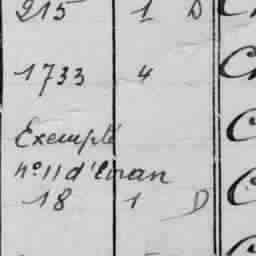 215 1 D
1733 4
Exemplé
n° 11 d'Oran
18 1 D